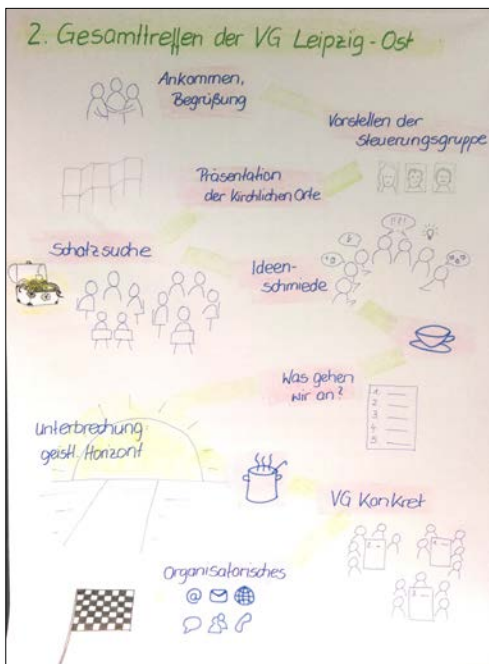 2. Gesamttreffen der VG Leipzig-Ost
Ankommen,
Begrüßung
Vorstellen der
Steuerungsgruppe
Präsentation
der kirchlichen Orte
Schatzsuche
Ideen-
schmiede
!!!
Was gehen
wir an?
1
2
3
4
5
Unterbrechung
geistl. Horizont
VG Konkret
Organisatorisches
@